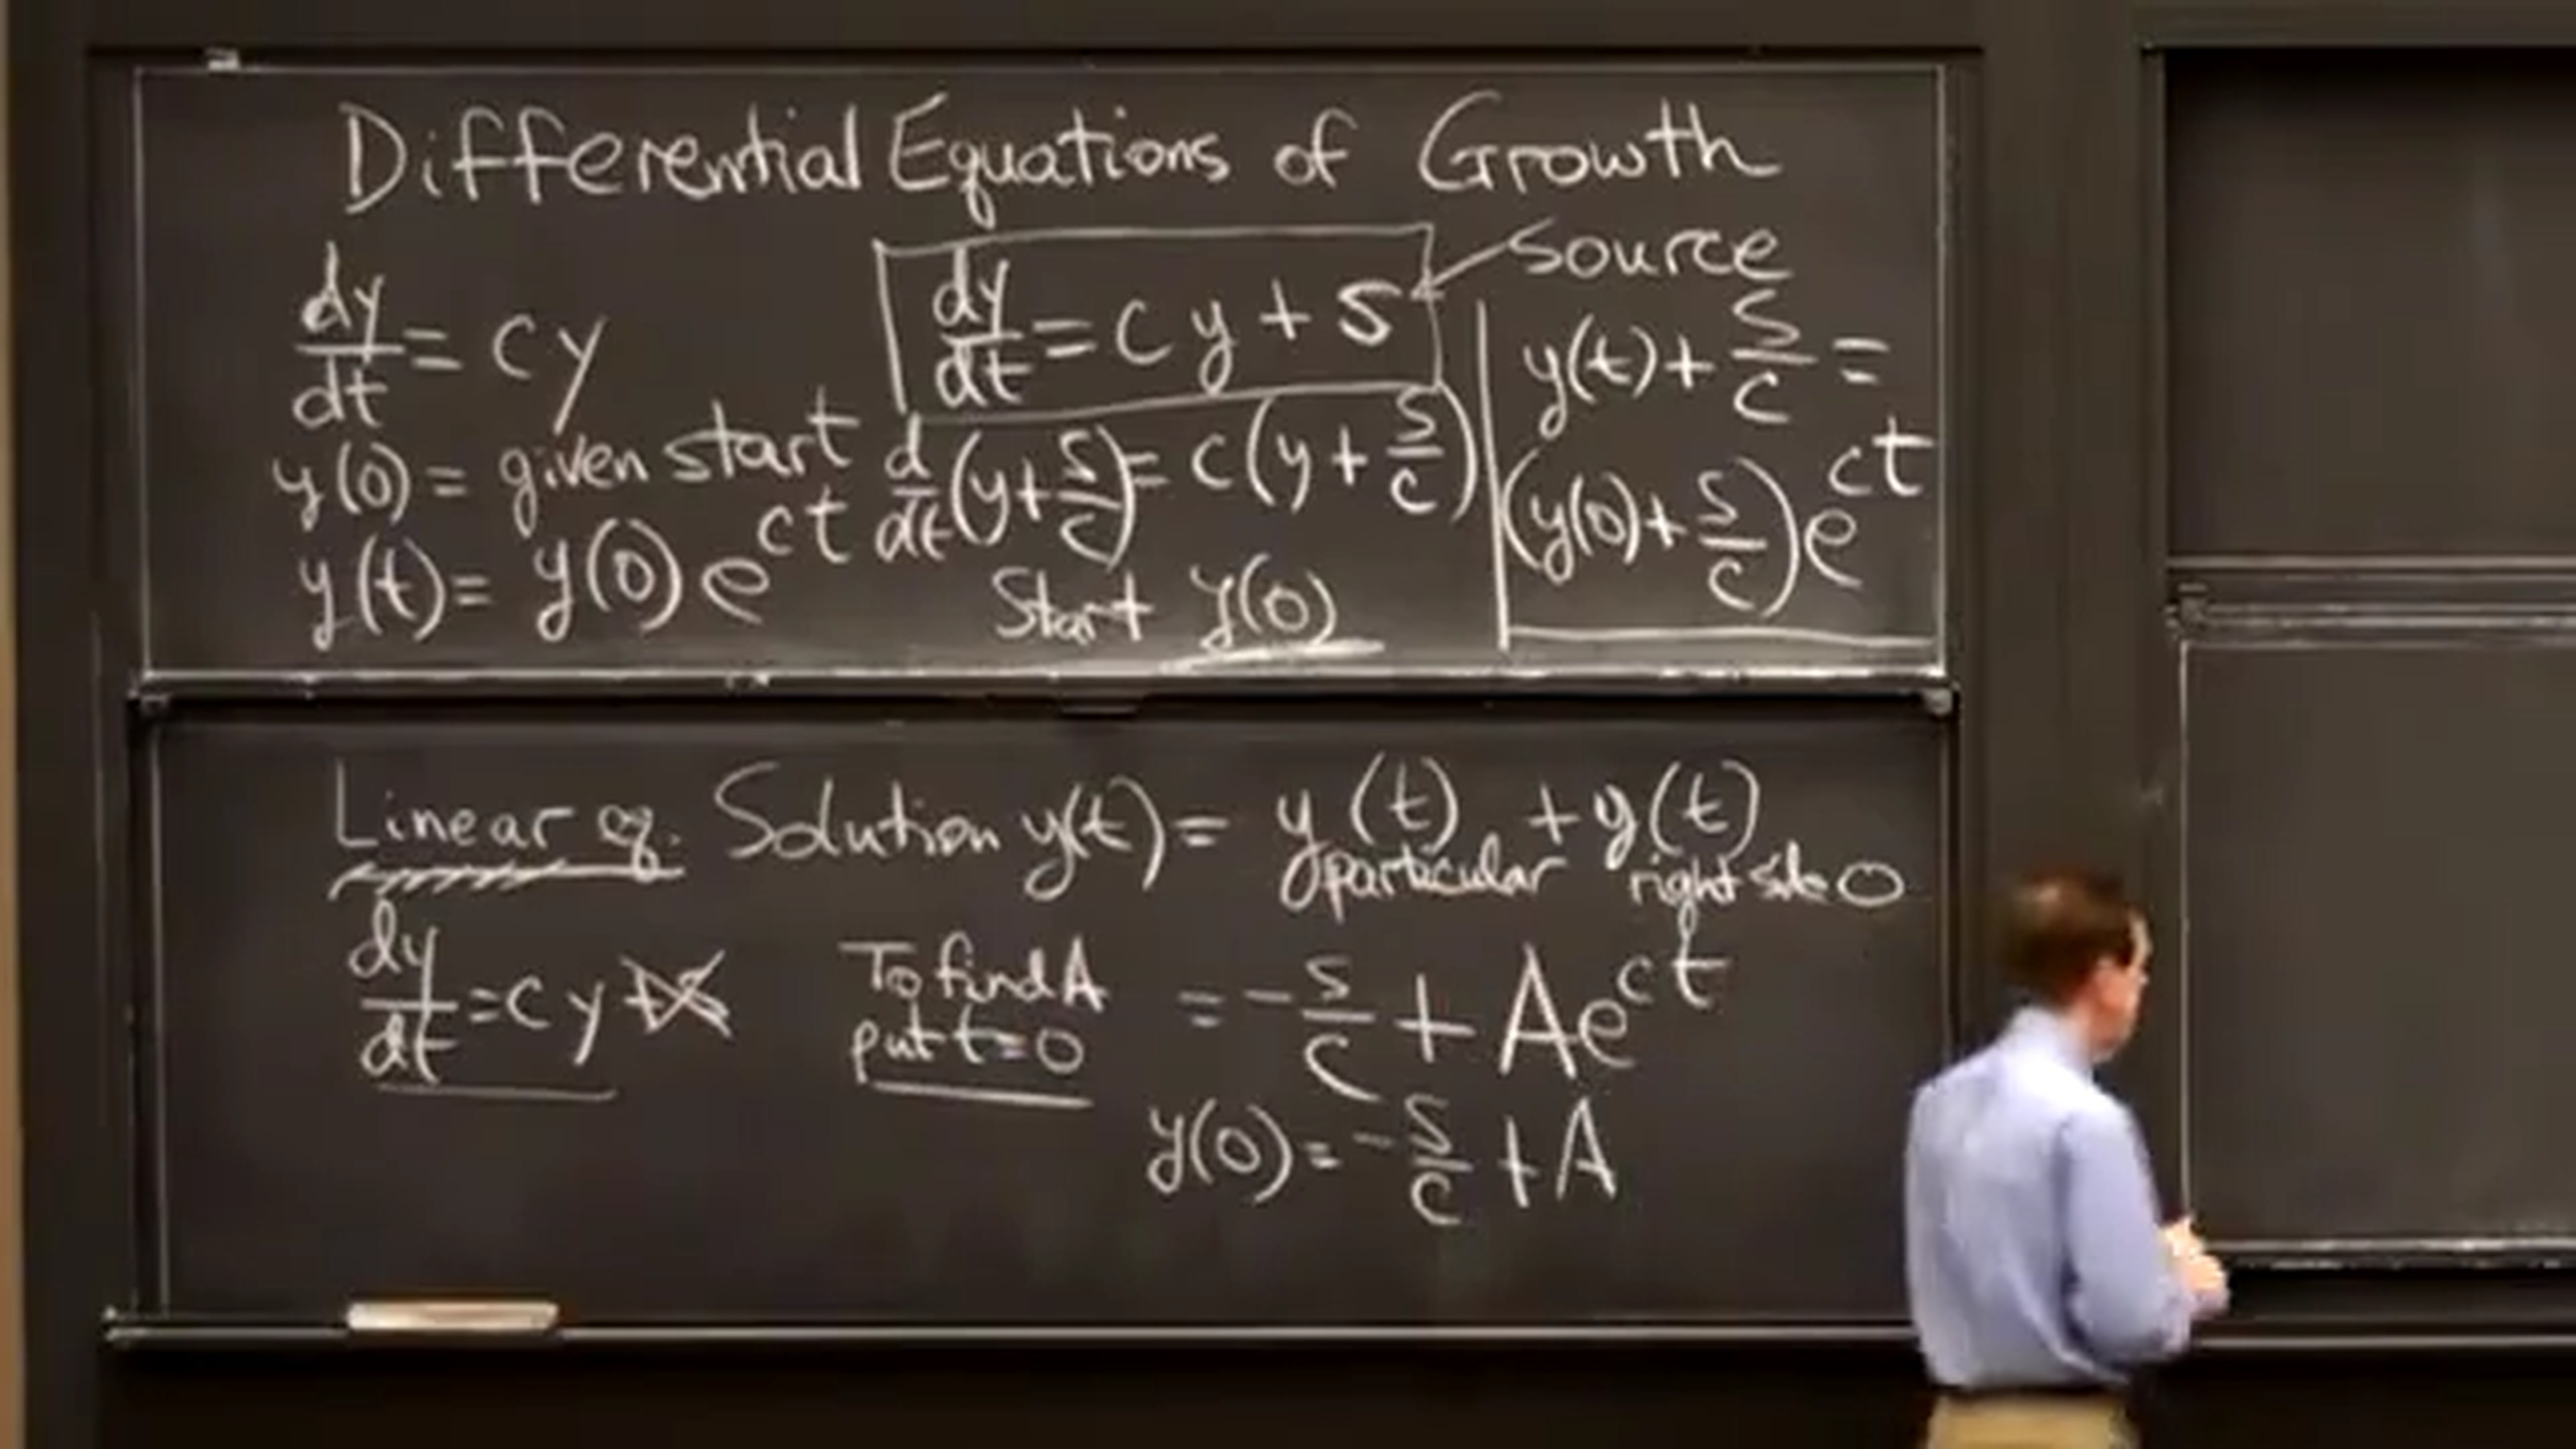 Differential Equations of Growth
dy/dt = cy
y(0) = given start
y(t) = y(0) e^ct
dy/dt = cy + s
source
d/dt (y + s/c) = c(y + s/c)
Start y(0)
y(t) + s/c =
(y(0) + s/c) e^ct
Linear eq. Solution y(t) = y(t) particular + y(t) right side 0
dy/dt = cy
To find A
put t=0
= -s/c + Ae^ct
y(0) = -s/c + A